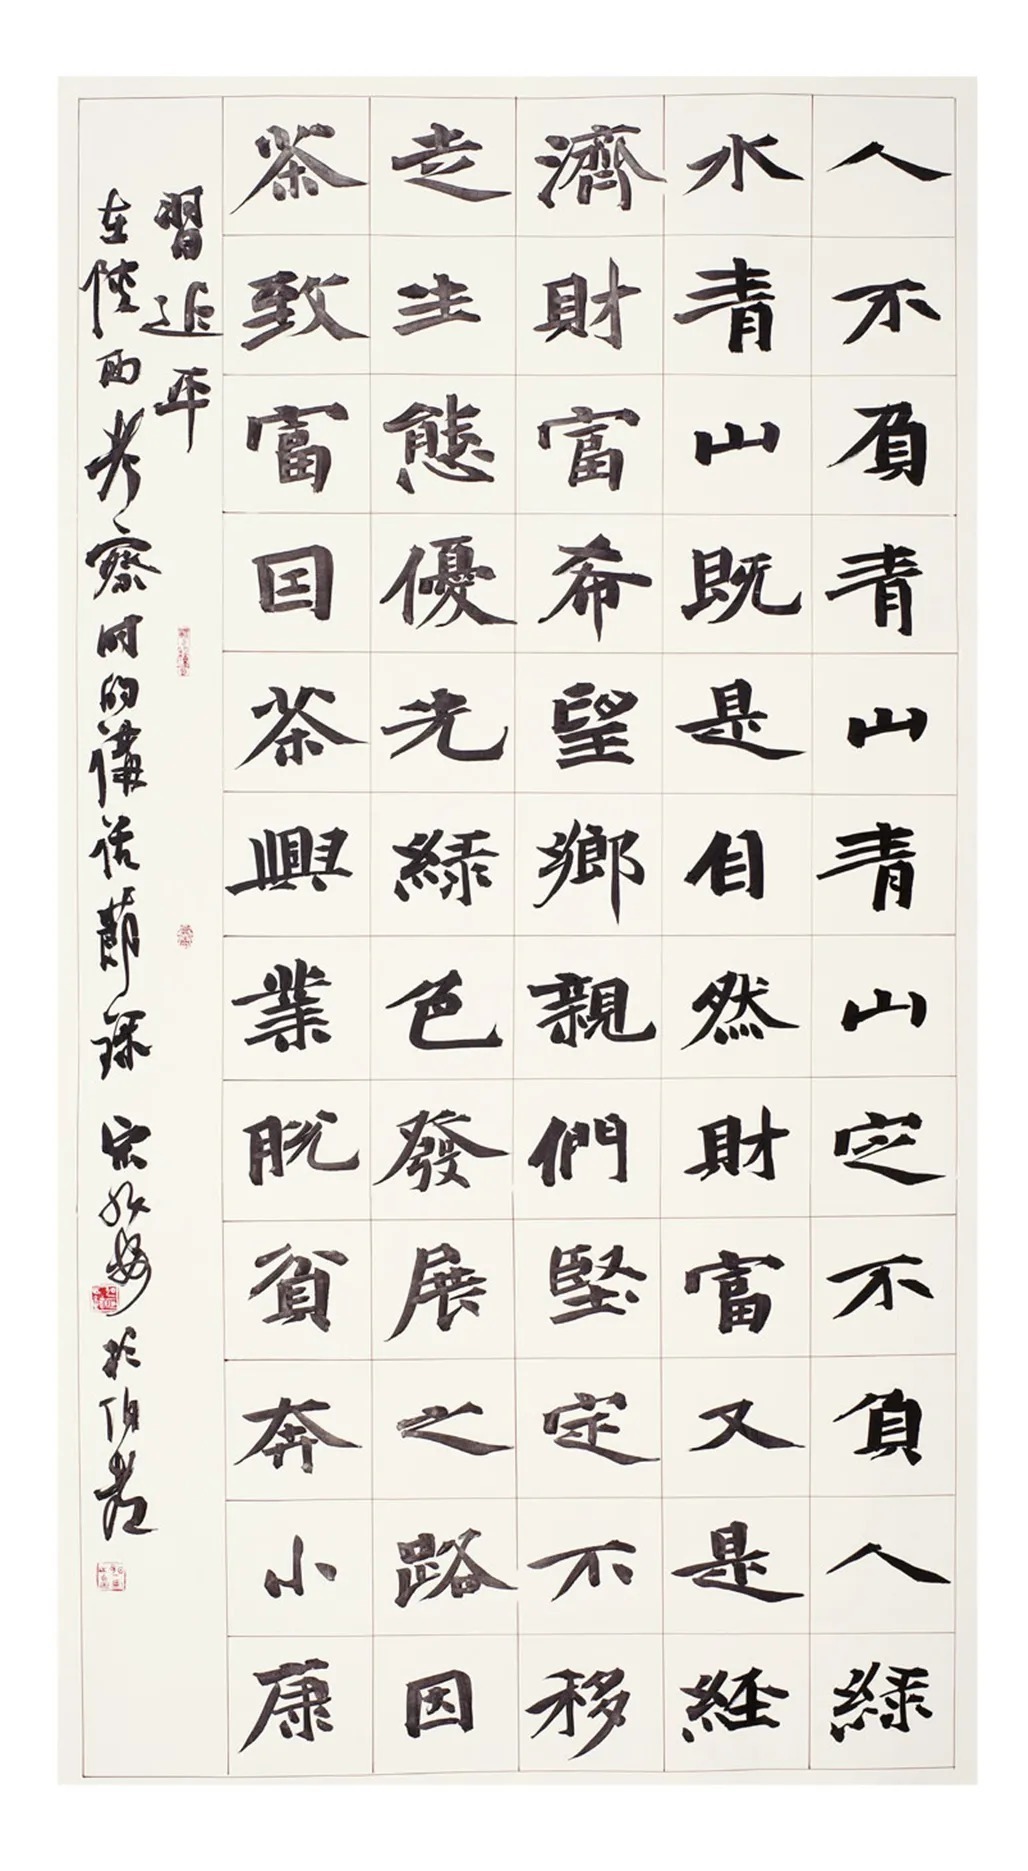 人不負青山青山定不負人綠
水青山既是自然財富又是經
濟財富希望鄉親們堅定不移
走生態優先綠色發展之路因
茶致富因茶興業脱貧奔小康
習近平
在陝西考察时的講話節録 宋 於